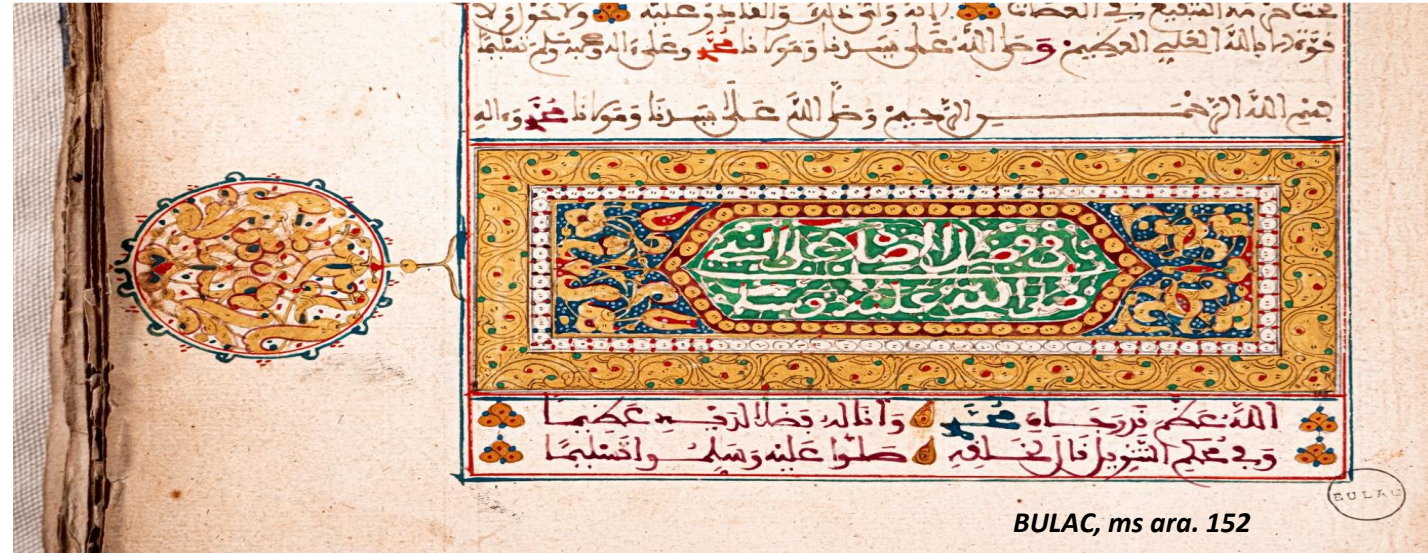 وعليه ولا حول ولا
قوة إلا بالله العلي العظيم وصلى الله على سيدنا ومولانا محمد وعلى اله وصحبه وسلم تسليما
بسم الله الرحمن الرحيم وصلى الله على سيدنا ومولانا محمد وءاله
باب في فضل الصلاة على النبي
صلى الله عليه وسلم
الله عظم قدر جاه محمد وأناله فضلا لديه عظيما
في محكم التنزيل قال لخلقه صلوا عليه وسلموا تسليما
BULAC
BULAC, ms ara. 152